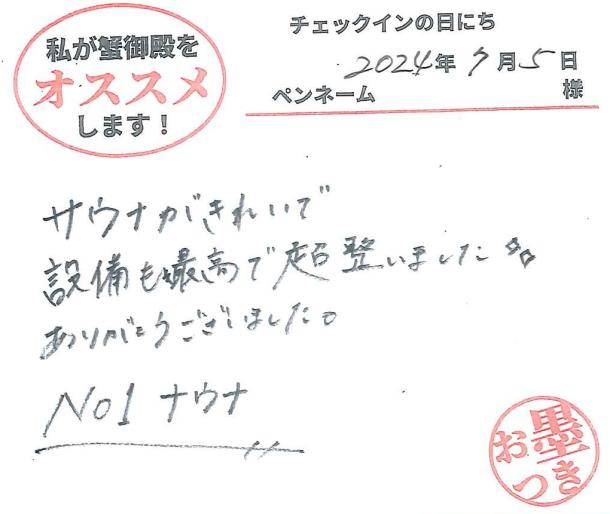 私が蟹御殿を
オススメ
します！
チェックインの日にち
2024年7月5日
ペンネーム 様
サウナがきれいで
設備も最高で超整いました
ありがとうございました。
No1 サウナ
お墨
つき